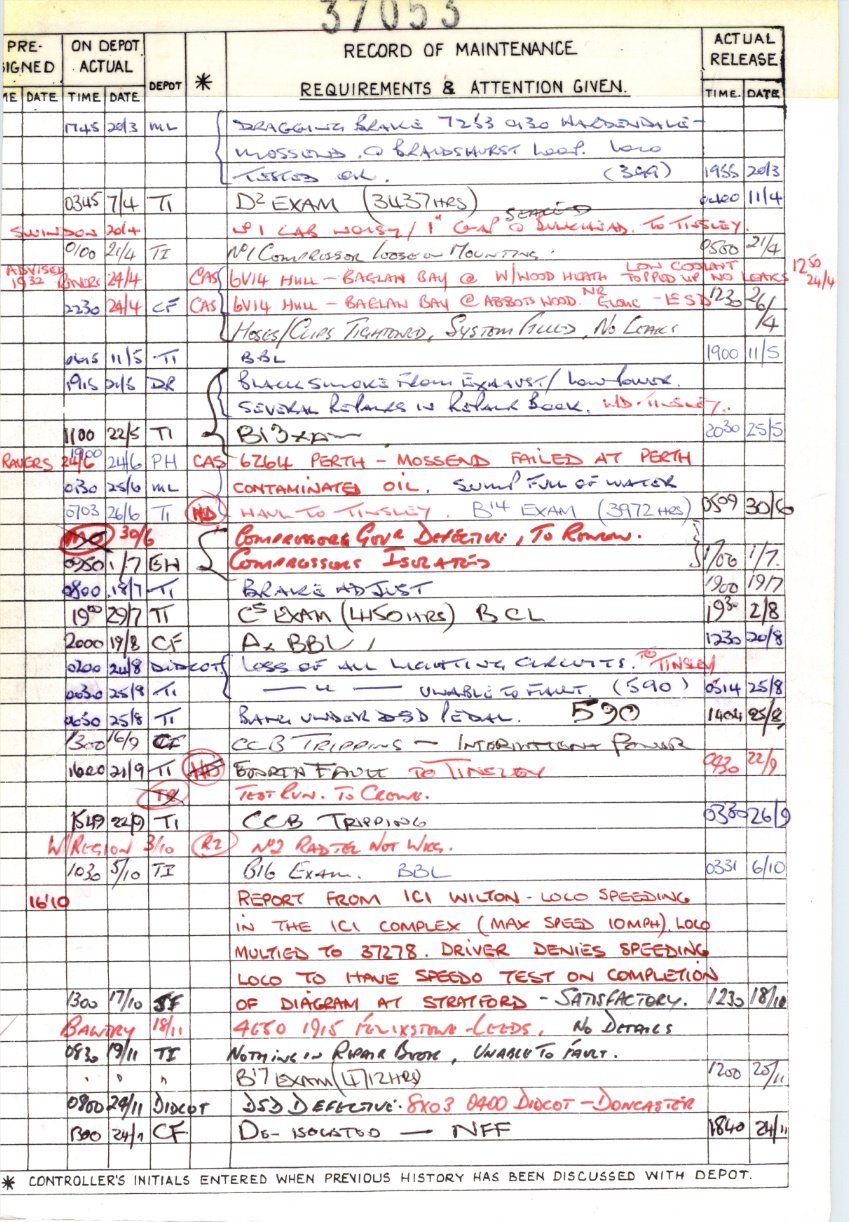 37053
PRE- ON DEPOT RECORD OF MAINTENANCE ACTUAL
IGNED ACTUAL DEPOT * REQUIREMENTS & ATTENTION GIVEN. RELEASE
ME DATE TIME DATE TIME. DATE
1745 20/3 ML DRAGGING BRAKE 7Z63 0430 HARDENDALE-
MOSSEND. @ BRAIDSHURST LOOP. LOCO
TESTED OK. (399) 1955 20/3
0345 7/4 TI D2 EXAM (3437 HRS) 0400 11/4
SWINDON 20/4 No 1 CAB NOISY / 1" GAP @ BULKHEAD. TO TINSLEY.
0100 21/4 TI No 1 COMPRESSOR LOOSE ON MOUNTING. 0500 21/4
ADVISED 1932 24/4 CAS 6V14 HULL - BAGLAN BAY @ W/WOOD HEATH LOW COOLANT TOPPED UP NO LEAKS 1250 24/4
2230 24/4 CF CAS 6V14 HULL - BAGLAN BAY @ ABBOTSWOOD. NR GLOUC - ESD 1230 26/4
HOSES/CLIPS TIGHTENED, SYSTEM FILLED, NO LEAKS
0615 11/5 TI BBL 1900 11/5
1915 21/5 DR BLACK SMOKE FROM EXHAUST / LOW POWER.
SEVERAL REPAIRS IN REPAIR BOOK. TINSLEY.
1100 22/5 TI B13 EXAM 2030 25/5
RAVERS 24/6 1900 24/6 PH CAS 6Z64 PERTH - MOSSEND FAILED AT PERTH
0130 25/6 ML CONTAMINATED OIL. SUMP FULL OF WATER
0703 26/6 TI HAUL TO TINSLEY. B14 EXAM (3972 HRS) 0509 30/6
30/6 COMPRESSORS GOVR DEFECTIVE, TO
0950 1/7 BH COMPRESSORS ISOLATED 1/7.
0800 18/7 TI BRAKE ADJUST 1900 19/7
1900 29/7 TI C5 EXAM (4150 HRS) BCL 1930 2/8
2000 19/8 CF Ax BBL 1230 20/8
0200 24/8 DIDCOT LOSS OF ALL LIGHTING CIRCUITS. TO TINSLEY
0030 25/8 TI — " — UNABLE TO FAULT. (590) 0514 25/8
0030 25/8 TI BANG UNDER DSD PEDAL. 590 1404 25/8
1300 16/9 CF CCB TRIPPING - INTERMITTENT POWER
1600 21/9 TI EARTH FAULT TO TINSLEY 0930 22/9
TEST RUN. TO CREWE.
1549 22/9 TI CCB TRIPPING 0330 26/9
W/REGION 3/10 R2 No 2 RAD TEL NOT WKG.
1030 5/10 TI B16 EXAM. BBL 0331 6/10
16/10 REPORT FROM ICI WILTON - LOCO SPEEDING
IN THE ICI COMPLEX (MAX SPEED 10MPH). LOCO
MULTIED TO 37278. DRIVER DENIES SPEEDING
LOCO TO HAVE SPEEDO TEST ON COMPLETION
1300 17/10 SF OF DIAGRAM AT STRATFORD - SATISFACTORY. 1230 18/10
BAWTRY 18/11 4E50 1915 FELIXSTOWE-LEEDS. NO DETAILS
0830 19/11 TI NOTHING IN REPAIR BOOK, UNABLE TO FAULT.
" " " B17 EXAM (4712 HRS) 1200 20/11
0800 24/11 DIDCOT DSD DEFECTIVE. 8X03 0400 DIDCOT - DONCASTER
1300 24/11 CF DE-ISOLATED — NFF 1840 24/11
* CONTROLLER'S INITIALS ENTERED WHEN PREVIOUS HISTORY HAS BEEN DISCUSSED WITH DEPOT.